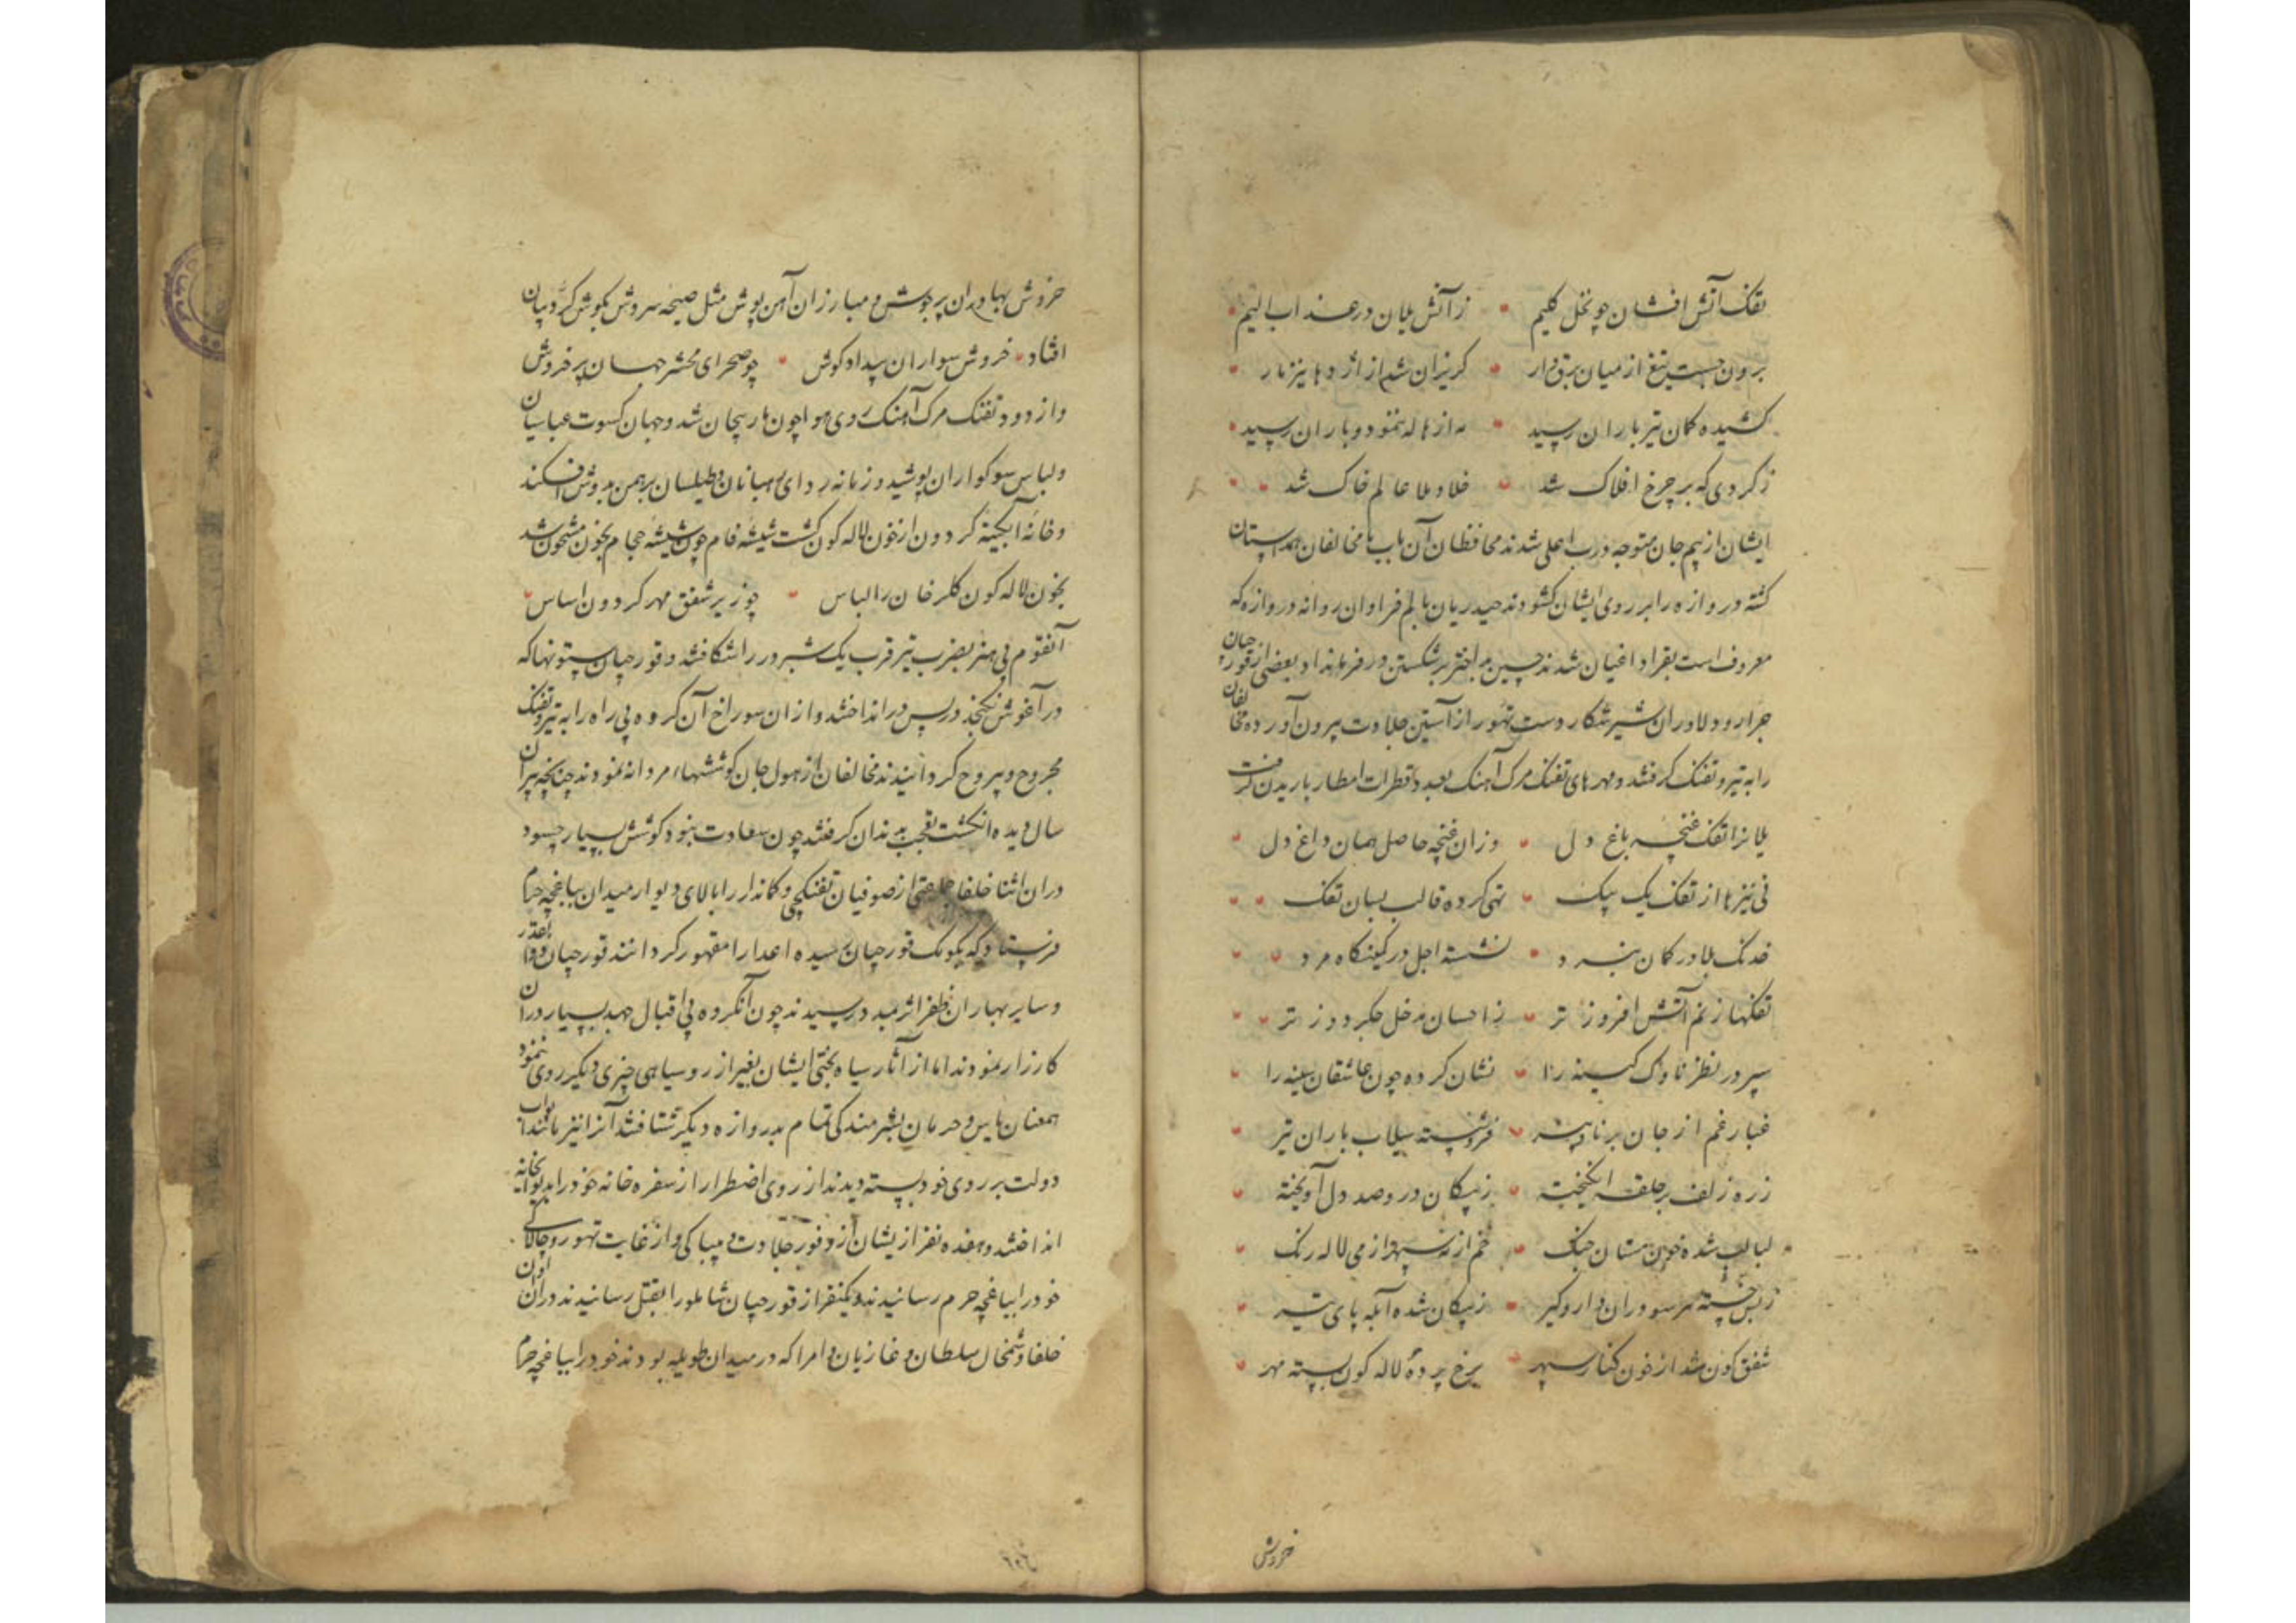 تفنک آتش افشان چو نخل کلیم زآتش یلان در عذاب الیم
برون جست تیغ از میان برق وار کریزان شد از اژدها نیزه مار
کشیده کمان تیر باران رسید مه از هاله بنمود و باران رسید
زکردی که بر چرخ افلاک شد خلا و ملا عالم خاک شد
ایشان از بیم جان متوجه درب اعلی شدند محافظان آن باب با مخالفان همداستان
کشته دروازه را بر روی ایشان کشودند حیدریان با لم فراوان روانه دروازه که
معروف است بقرا داغیان شدند حسین بیک اختر بر شکستن در فرمان داد و بعضی از قورچیان
جرار و دلاوران شیر شکار دست تهور از آستین جلادت بیرون آورده مخالفان
را به تیر و تفنک کرفتند و مهره‌های تفنک مرک آهنک بعدد قطرات امطار باریدن کرفت
یلانرا تفنک غنچه باغ دل وزان غنچه حاصل همان داغ دل
نی نیزها از تفنک یک بیک تهی کرده قالب بسان تفک
خدنک بلا در کمان نبرد نشسته اجل در کمینکاه مرد
تفنکها ز غم آتش افروز تر ز احسان مدخل جکر دوز تر
سپر در نظر ناوک کینه را نشان کرده چون عاشقان سینه را
غبار غم از جان برنا و پیر فرو شسته سیلاب باران تیر
زره زلف پر حلقه انکیخته ز پیکان درو صد دل آویخته
لبالب شده خون مستان جنک خم از نه سپهر از می لاله رنک
ز بس جسته هر سو دران دار وکیر ز پیکان شده آبله پای تیر
شفق کون شد از خون کنار سپهر برخ پرده لاله کون بسته مهر
خروش
خروش بهادران پرجوش و مبارزان آهن پوش مثل صیحه سروش بکوش کروبیان
افتاد خروش سواران بیداد کوش چو صحرای محشر جهان پر خروش
واز دود تفنک مرک آهنک روی هوا چون مار پیچان شد و جهان کسوت عباسیان
ولباس سوکواران پوشید و زمانه ردای رهبانان و طیلسان برهمن بر دوش افکند
وخانه آبکینه کردون از خون لاله کون کشت شیشه فام چون شیشه حجام بخون مشحون شد
بخون لاله کون کلرخان را لباس چو زیر شفق مهر کردون اساس
آنقوم بی هنر بضرب تیر قرب یک شبر در را شکافتند و قورچیان ستونها که
در آغوش نکنجد در پس در انداختند و از ان سوراخ آن کروه بی راه را به تیر و تفنک
مجروح و بیروح کردانیدند مخالفان از هول جان کوششهاء مردانه نمودند چنانچه پیران
سال دیده انکشت تعجب بدندان کرفتند چون سعادت نبود کوشش بسیار چسود
دران اثنا خلفا جماعتی از صوفیان تفنکچی و کماندار را بالای دیوار میدان بباغچه حرم
فرستاد که بکومک قورچیان رسیده اعدا را مقهور کردانند قورچیان
وسایر بهادران ظفر اثر بمدد رسیدند چون آنکروه بی اقبال جهد بسیار دران
کارزار نمودند اما از آثار سیاه بختی ایشان بغیر از روسیاهی چیزی دیکر روی ننمود
همعنان یاس و حرمان بشرمندکی تمام بدروازه دیکر شتافتند آنرا نیز مانند ابواب
دولت بر روی خود بسته دیدند از روی اضطرار از سفره خانه خود را بدیوانخانه
انداختند و هفده نفر از یشان از وفور جلادت و بیباکی و از غایت تهور و چالاکی
خود را بباغچه حرم رسانیدند و یکنفر از قورچیان شاملو را بقتل رسانیدند دران اوان
خلفا و شمخال سلطان و غازیان و امرا که در میدان طویله بودند خود را بباغچه حرم